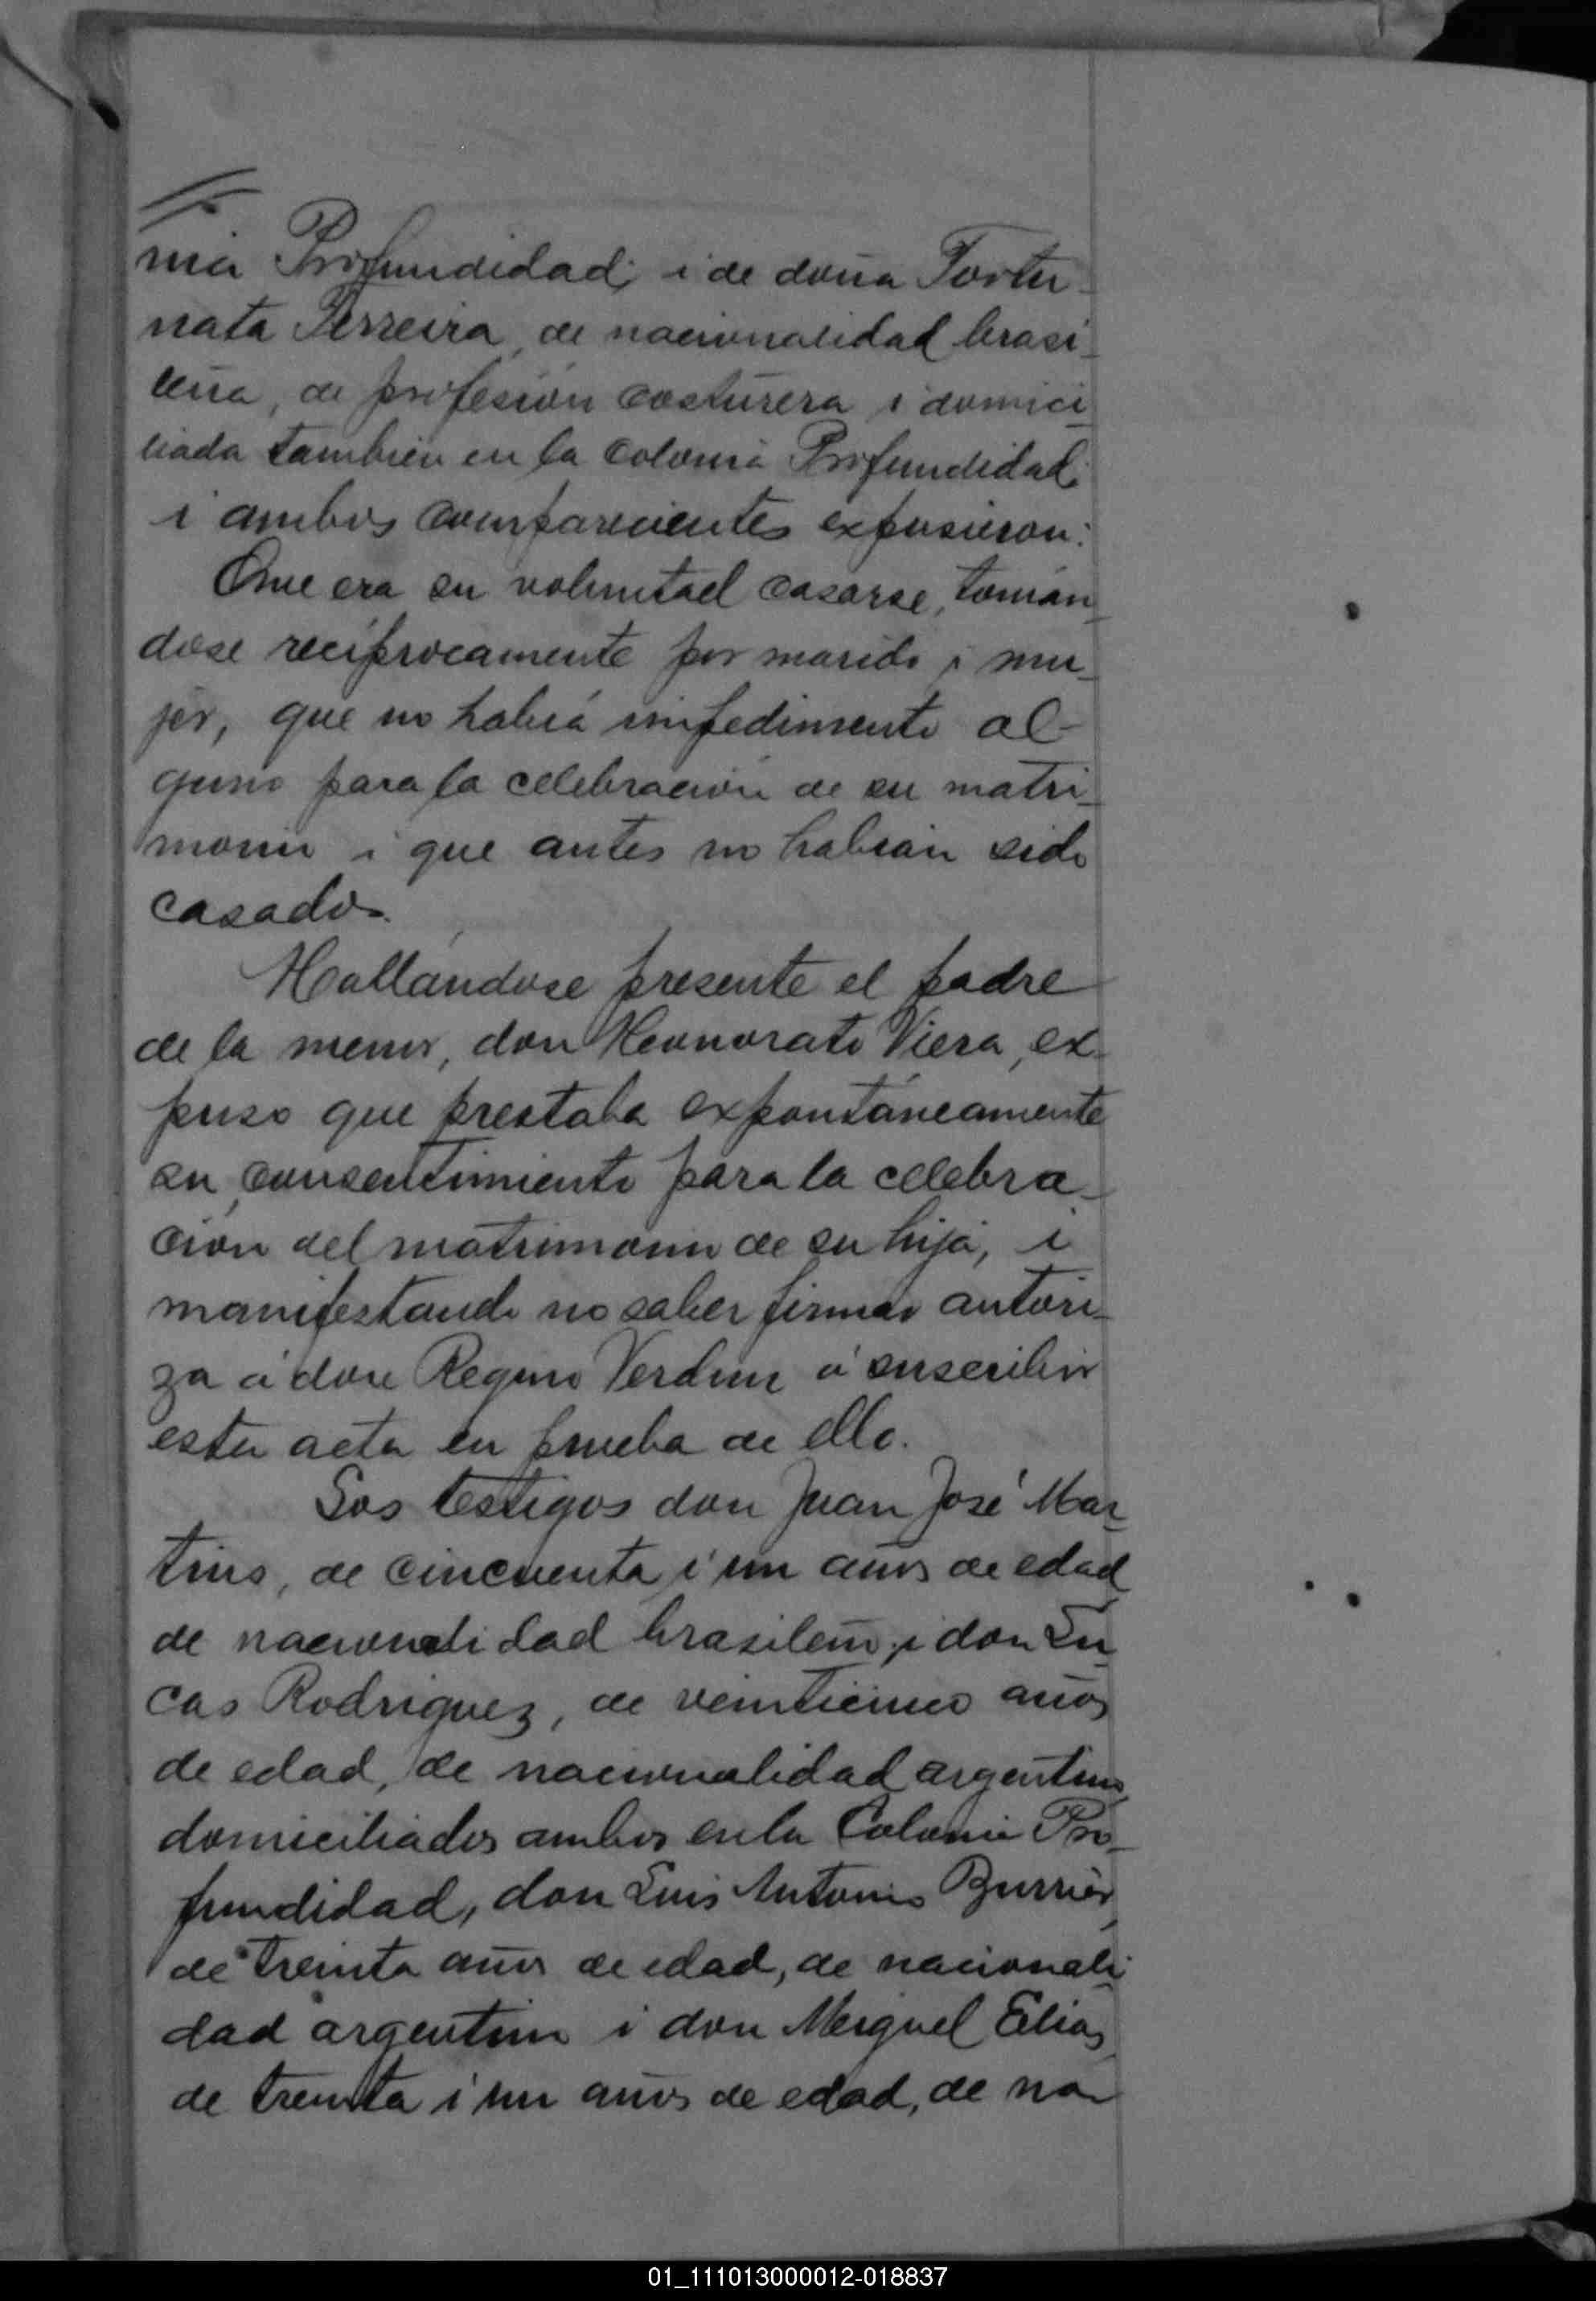 nia Profundidad; i de doña Fortu-
nata Ferreira, de nacionalidad brasi-
leña, de profesión costurera i domici-
liada también en la colonia Profundidad;
i ambos comparecientes expusieron:
Que era su voluntad casarse, tomán-
dose recíprocamente por marido i mu-
jer, que no había impedimento al-
guno para la celebración de su matri-
monio i que antes no habían sido
casados.
Hallándose presente el padre
de la menor, don Heonorato Viera, ex-
puso que prestaba expontáneamente
su consentimiento para la celebra-
ción del matrimonio de su hija, i
manifestando no saber firmar autori-
za á don Regino Verdun á suscribir
esta acta en prueba de ello.
Los testigos don Juan José Mar-
tins, de cincuenta i un años de edad
de nacionalidad brasileño i don Lu-
cas Rodriguez, de veinticinco años
de edad, de nacionalidad argentino,
domiciliados ambos en la Colonia Pro-
fundidad, don Luis Antonio
de treinta años de edad, de nacionali-
dad argentino i don Meiguel Elias,
de treinta i un años de edad, de na
01_111013000012-018837